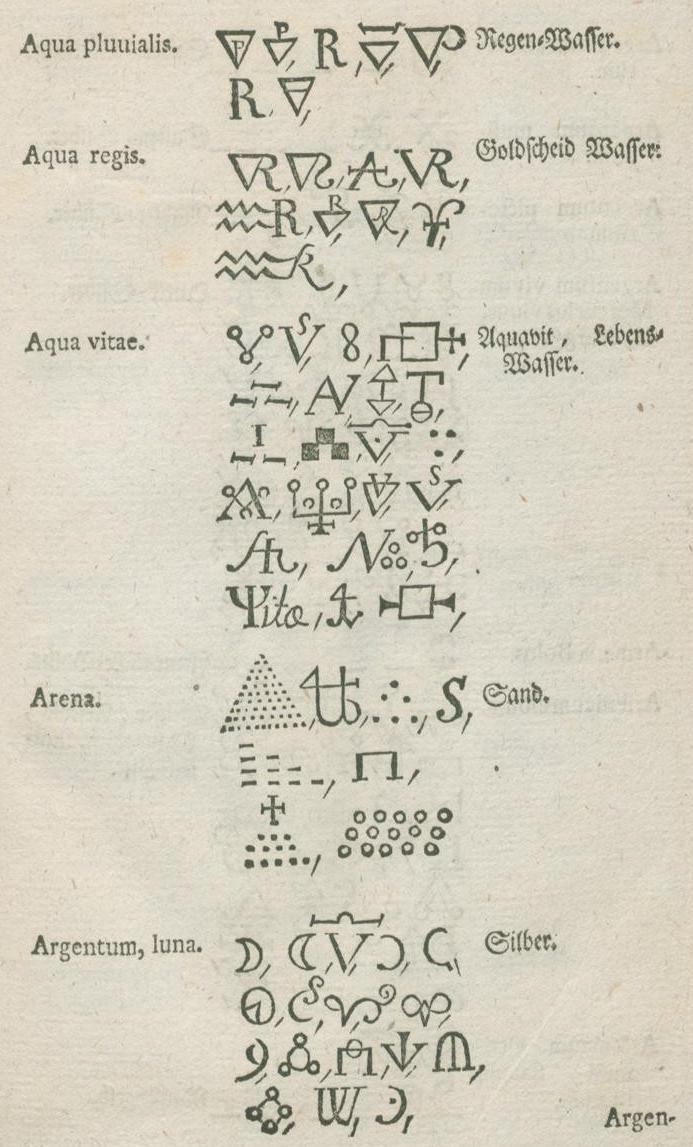 Aqua pluuialis. Regen-Wasser.
Aqua regis. Goldscheid Wasser:
Aqua vitae. Aquavit, Lebens-
Wasser.
Arena. Sand.
Argentum, luna. Silber.
Argen-